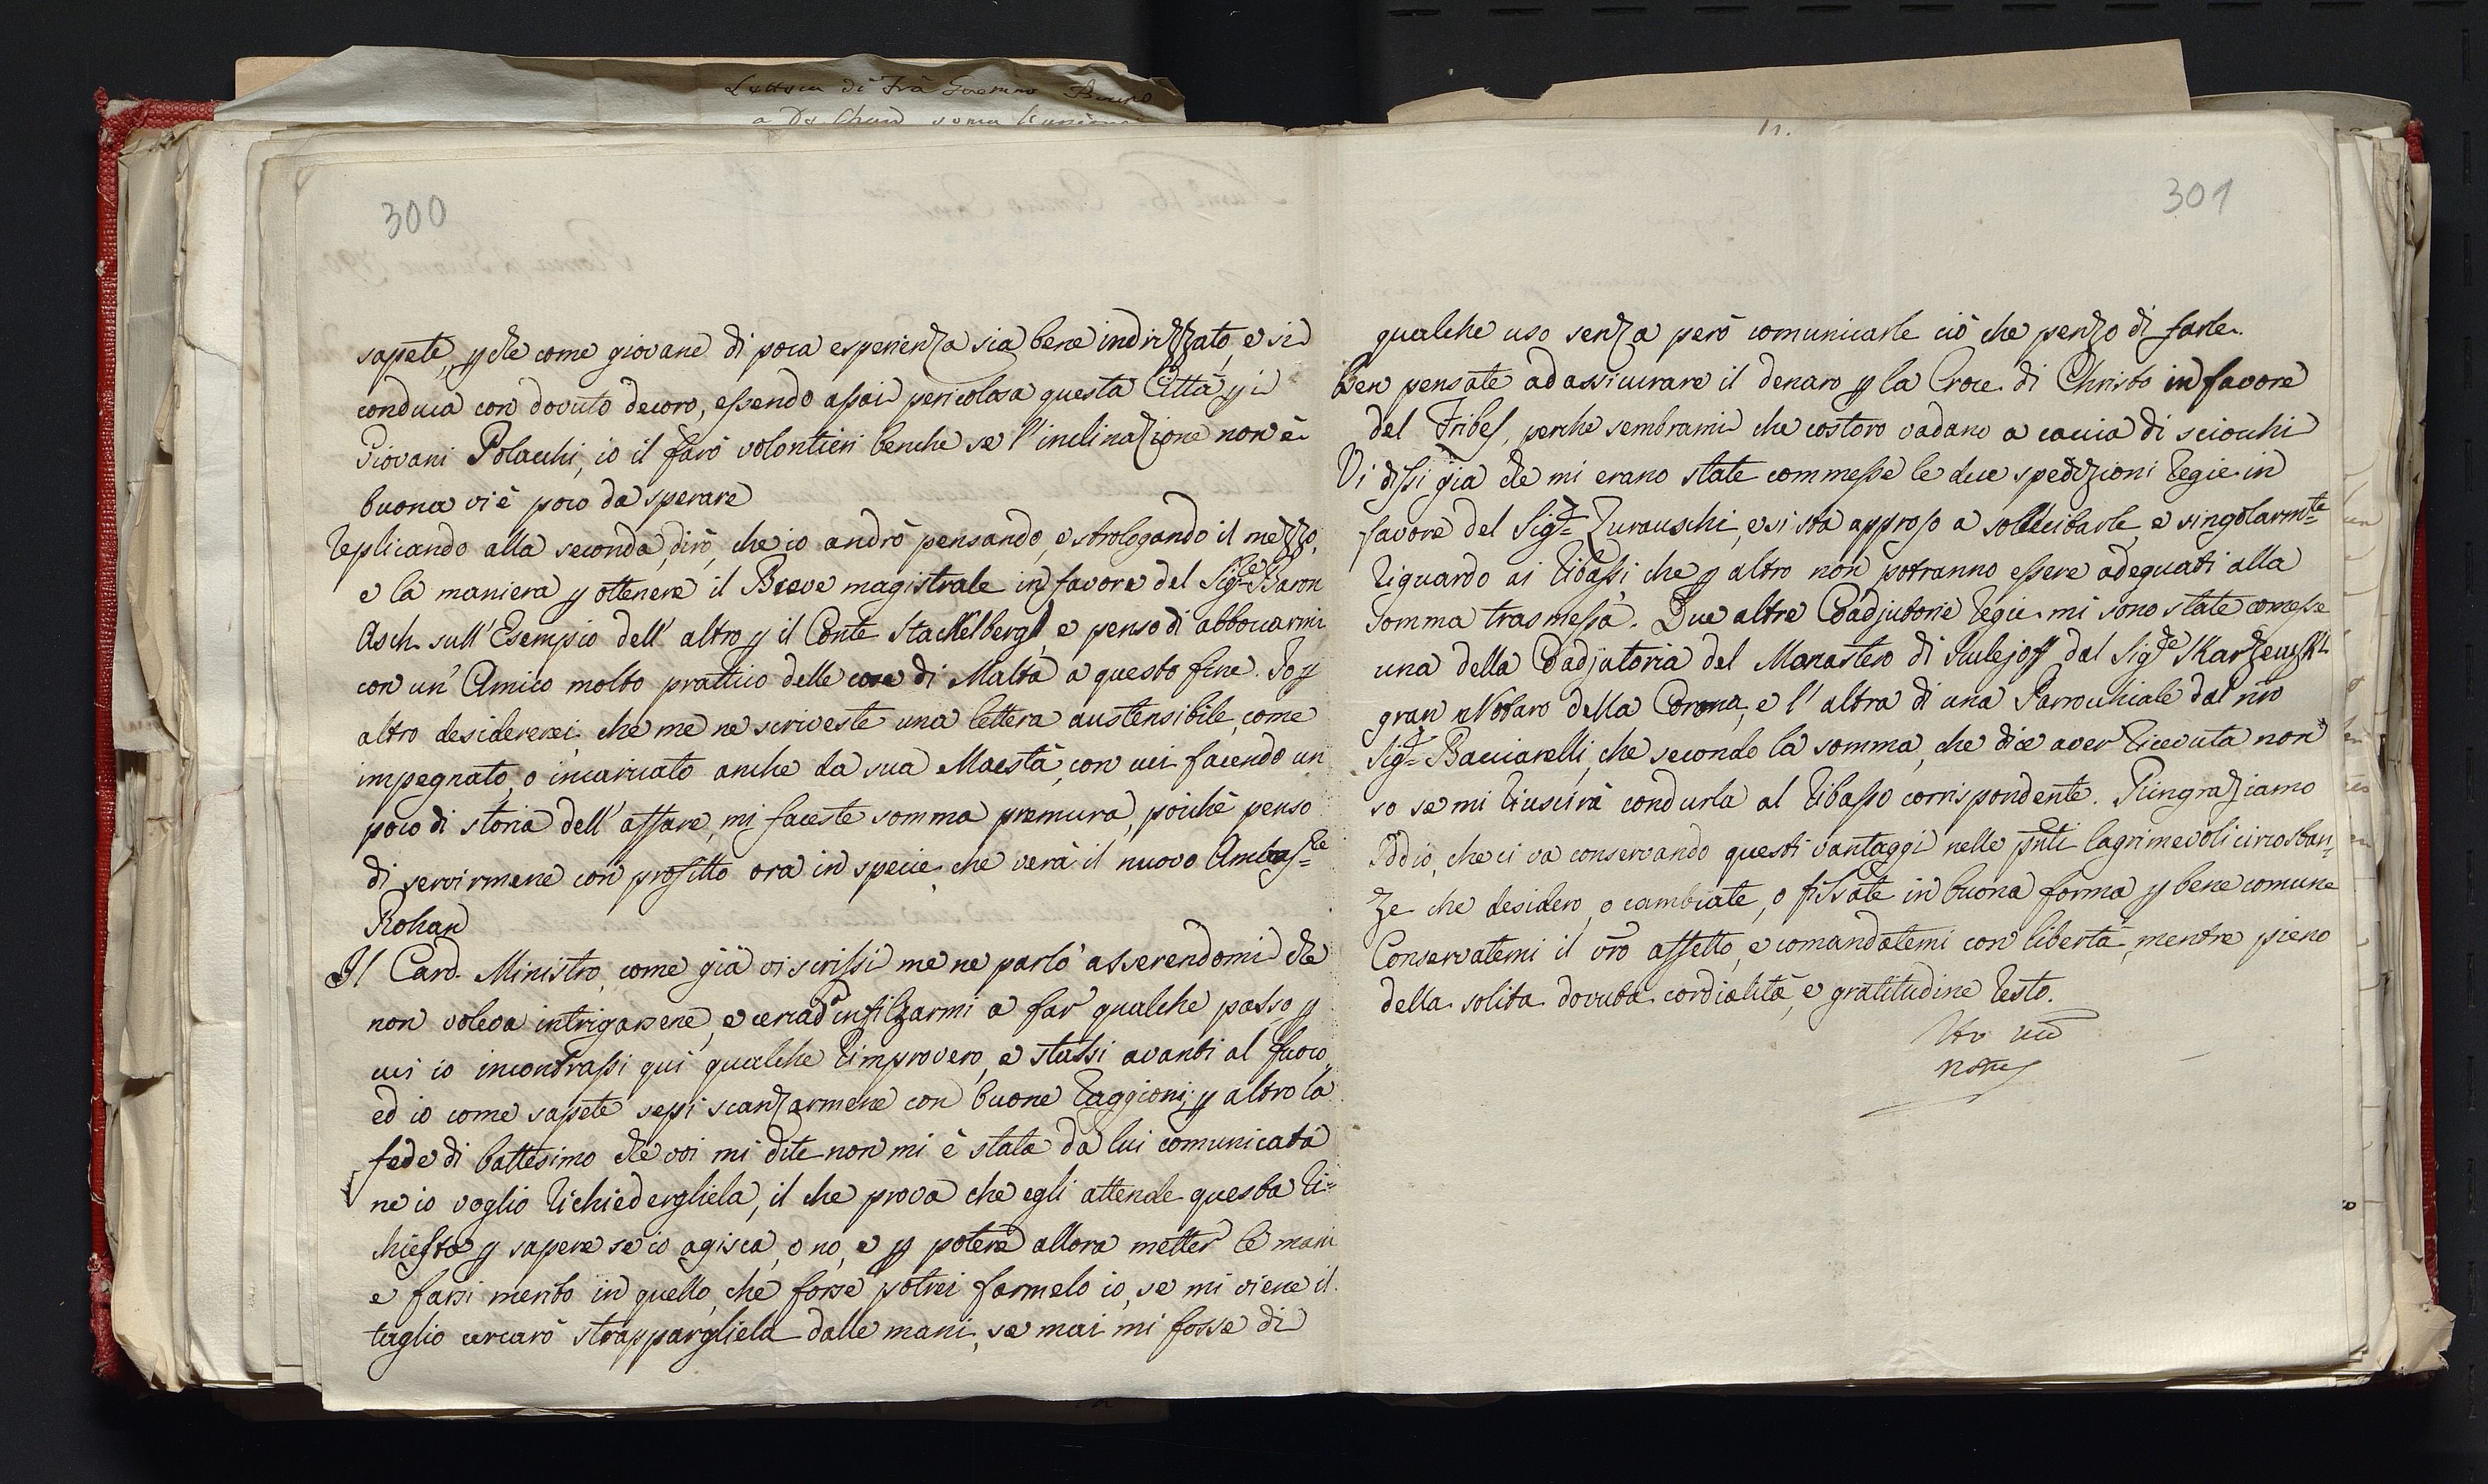 Lettera di Frà Gaetano Bruno
300
sapete, p che come giovane di poca esperienza sia bene indirizzato, e si
conduca con dovuto decoro, essendo assai pericolosa questa Città p i
Giovani Polacchi, io il farò volontieri benche se l'inclinazione non è
buona vi è poco da sperare
Replicando alla seconda, dirò, che io andrò pensando, e strologando il mezzo,
e la maniera p ottenere il Breve magistrale in favore del Sig.re Baron
Asch. sull'Esempio dell'altro p il Conte Stackelbergh, e penso di abboccarmi
con un'Amico molto prattico delle cose di Malta a questo fine. Io p
altro desidererei, che me ne scriveste una lettera austensibile, come
impegnato, o incaricato anche da sua Maestà, con cui facendo un
poco di storia dell'affare, mi faceste somma premura, poichè penso
di servirmene con profitto ora in specie, che verà il nuovo Ambas.re
Rohan
Il Card. Ministro, come già vi scrissi me ne parlò asserendomi che
non voleva intrigarsene, e cercad infilzarmi a far qualche passo p
cui io incontrassi qui qualche rimprovero, e stassi avanti al fuoco,
ed io come sapete seppi scanzarmene con buone raggioni; p altro la
fede di battesimo che voi mi dite non mi è stata da lui comunicata
ne io voglio richiedergliela, il che prova che egli attende questa ri=
chiesta p sapere se io agisca, o no, e p potere allora metter le mani
e farsi merito in quello, che forse potrei farmelo io, se mi viene il
taglio cercarò strappargliela dalle mani, se mai mi fosse di
301
qualche uso senza però comunicarle ciò che penzo di farle.
Ben pensate ad assicurare il denaro p la Croce di Christo in favore
del Tribes, perche sembrami che costoro vadano a caccia di sciocchi
Vi dissi gia che mi erano state commesse le due spedizioni regie in
favore del Sig.r Zurauschi, e si sta appresso a sollecitarle, e singolarm.te
riguardo ai ribassi, che p altro non potranno essere adeguati alla
somma trasmessa. Due altre Coadjutorie regie mi sono state comesse
una della Coadjutoria del Monastero di Sulejoff dal Sig.re Skarzeuski
gran Notaro della Corona, e l'altra di una Parrochiale dal nro
Sig.r Bacciarelli, che secondo la somma, che dice aver ricevuta non
so se mi riuscirà condurla al ribasso corrispondente. Ringraziamo
Iddio, che ci va conservando questi vantaggi nelle pnti lagrimevoli circostan=
ze che desidero, o cambiate, o fissate in buona forma p bene comune
Conservatemi il vro affetto, e comandatemi con libertà, mentre pieno
della solita dovuta cordialità, e gratitudine resto.